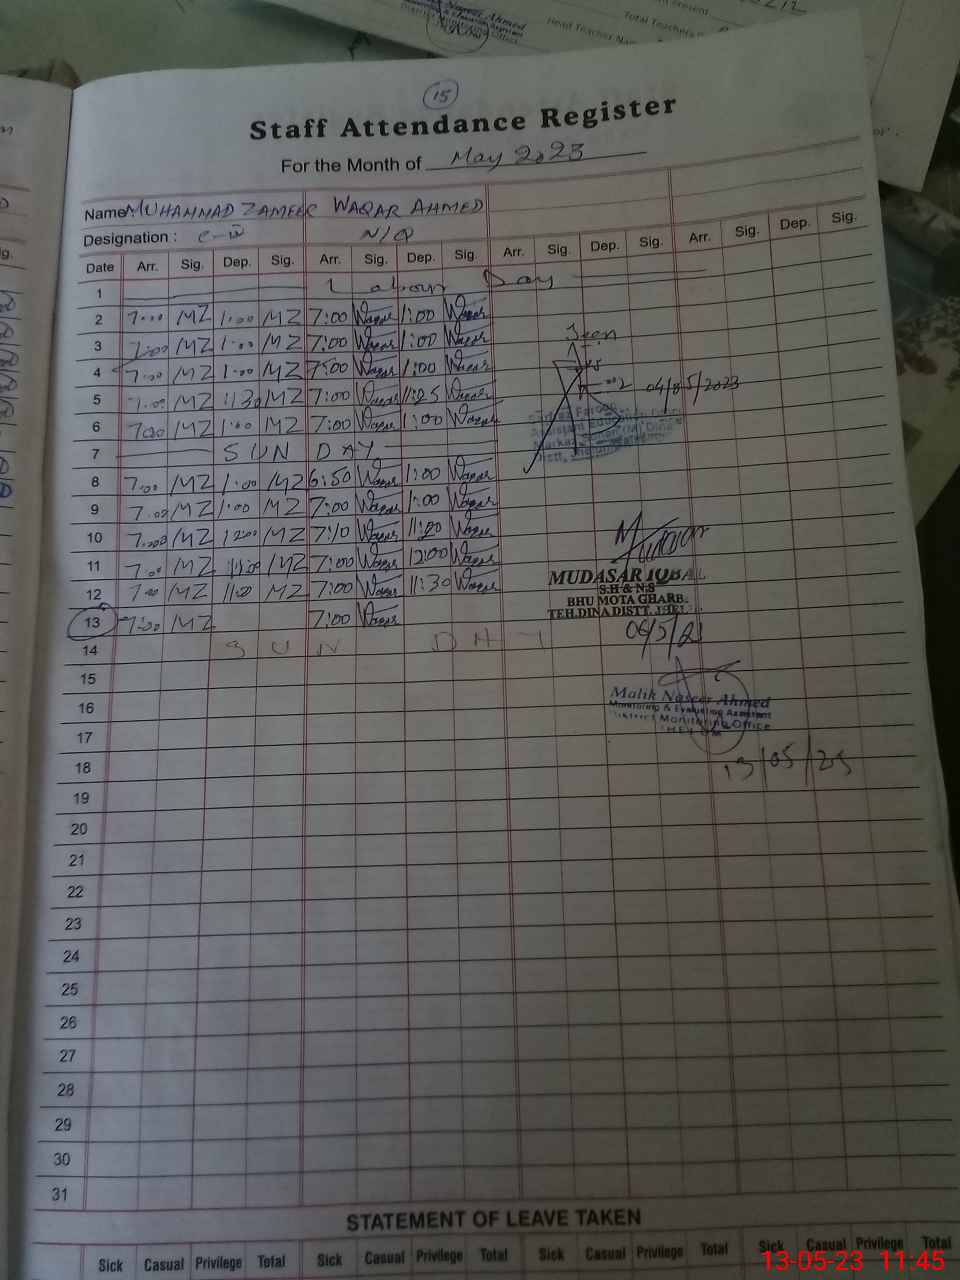 15
Staff Attendance Register
For the Month of May 2023
Name MUHAMMAD ZAMEER WAQAR AHMED
Designation : N/Q
Date Arr. Sig. Dep. Sig. Arr. Sig. Dep. Sig. Arr. Sig. Dep. Sig. Arr. Sig. Dep. Sig.
1 Labour Day
2 7:00 MZ 1:00 MZ 7:00 Waqar 1:00 Waqar
3 7:00 MZ 1:00 MZ 7:00 Waqar 1:00 Waqar
4 7:00 MZ 1:00 MZ 7:00 Waqar 1:00 Waqar
5 7:00 MZ 1130 MZ 7:00 Waqar 11:25 Waqar
6 700 MZ 1:00 MZ 7:00 Waqar 1:00 Waqar
7 SUN DAY
8 7:00 MZ 1:00 MZ 6:50 Waqar 1:00 Waqar
9 7:00 MZ 1:00 MZ 7:00 Waqar 1:00 Waqar
10 7:00 MZ 1200 MZ 7:10 Waqar 11:00 Waqar
11 7:00 MZ MZ 7:00 Waqar 12:00 Waqar
12 7:00 MZ 1100 MZ 7:00 Waqar 11:30 Waqar
13 7:00 MZ 7:00 Waqar
14 SUN DAY
15
16
17
18
19
20
21
22
23
24
25
26
27
28
29
30
31
Seen
04/05/2023
MUDASAR IQBAL
S.H & N.S
BHU MOTA GHARB.
TEH.DINA DISTT.
06/5/23
Malik Naseer Ahmed
Monitoring & Evaluating Assistant
District Monitoring Office
JHELUM
13/05/23
STATEMENT OF LEAVE TAKEN
Sick Casual Privilege Total Sick Casual Privilege Total Sick Casual Privilege Total Sick Casual Privilege Total
13-05-23 11:45